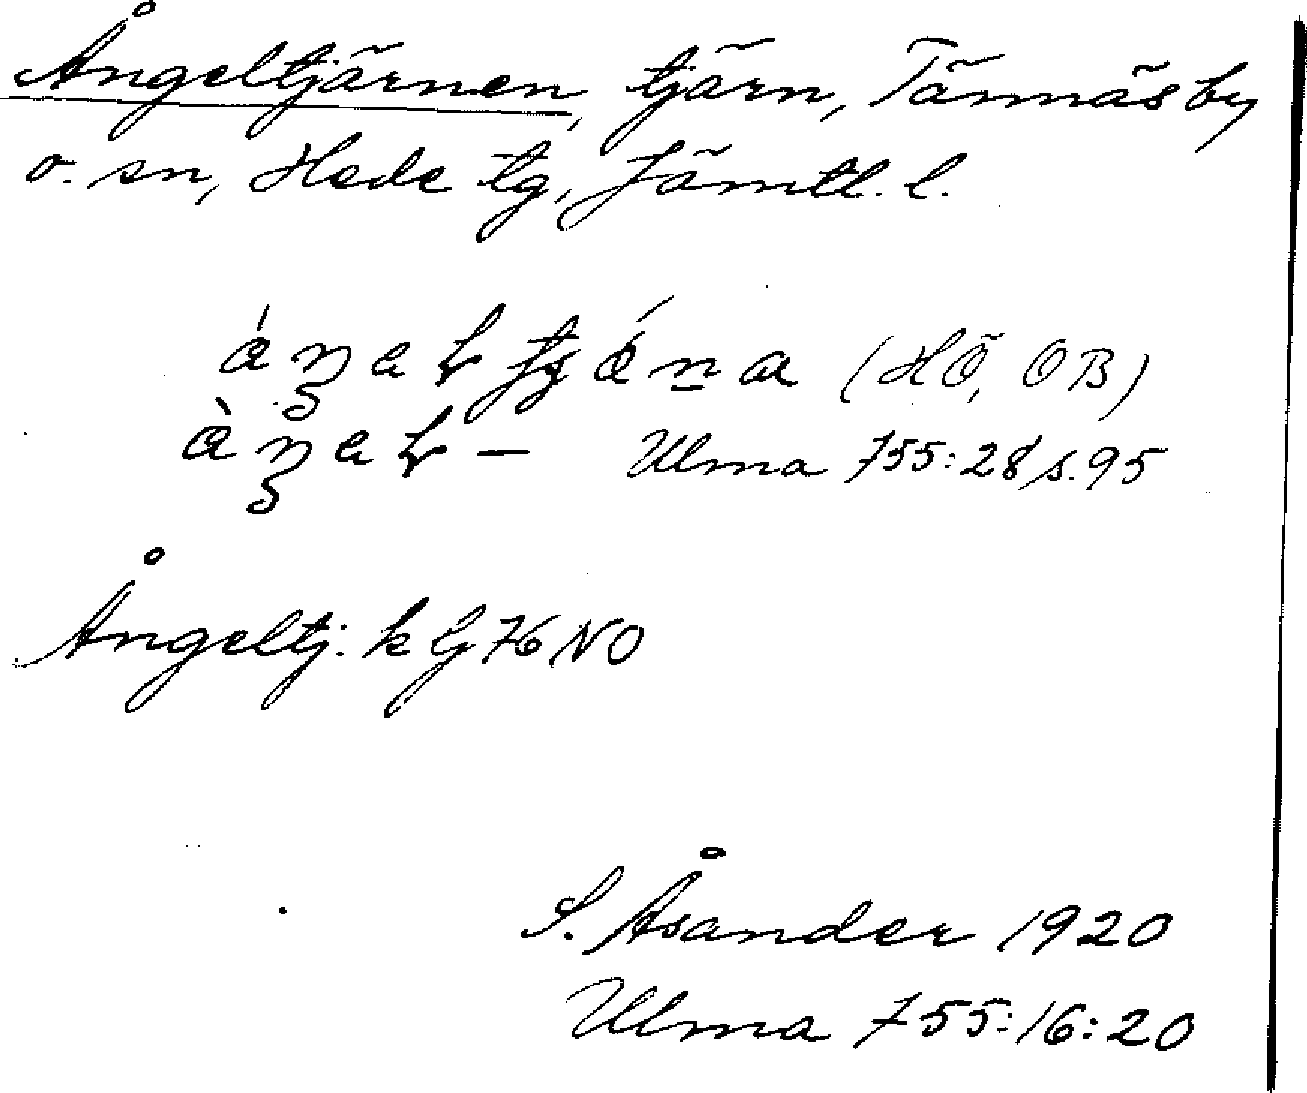 Ångeltjärnen, tjärn, Tännäs by
o. sn, Hede tg, Jämtl. l.
(HÖ, OB)
— Ulma 755:28 s.95
Ångeltj. k G 76 NO
S. Åsander 1920
Ulma 755:16:20